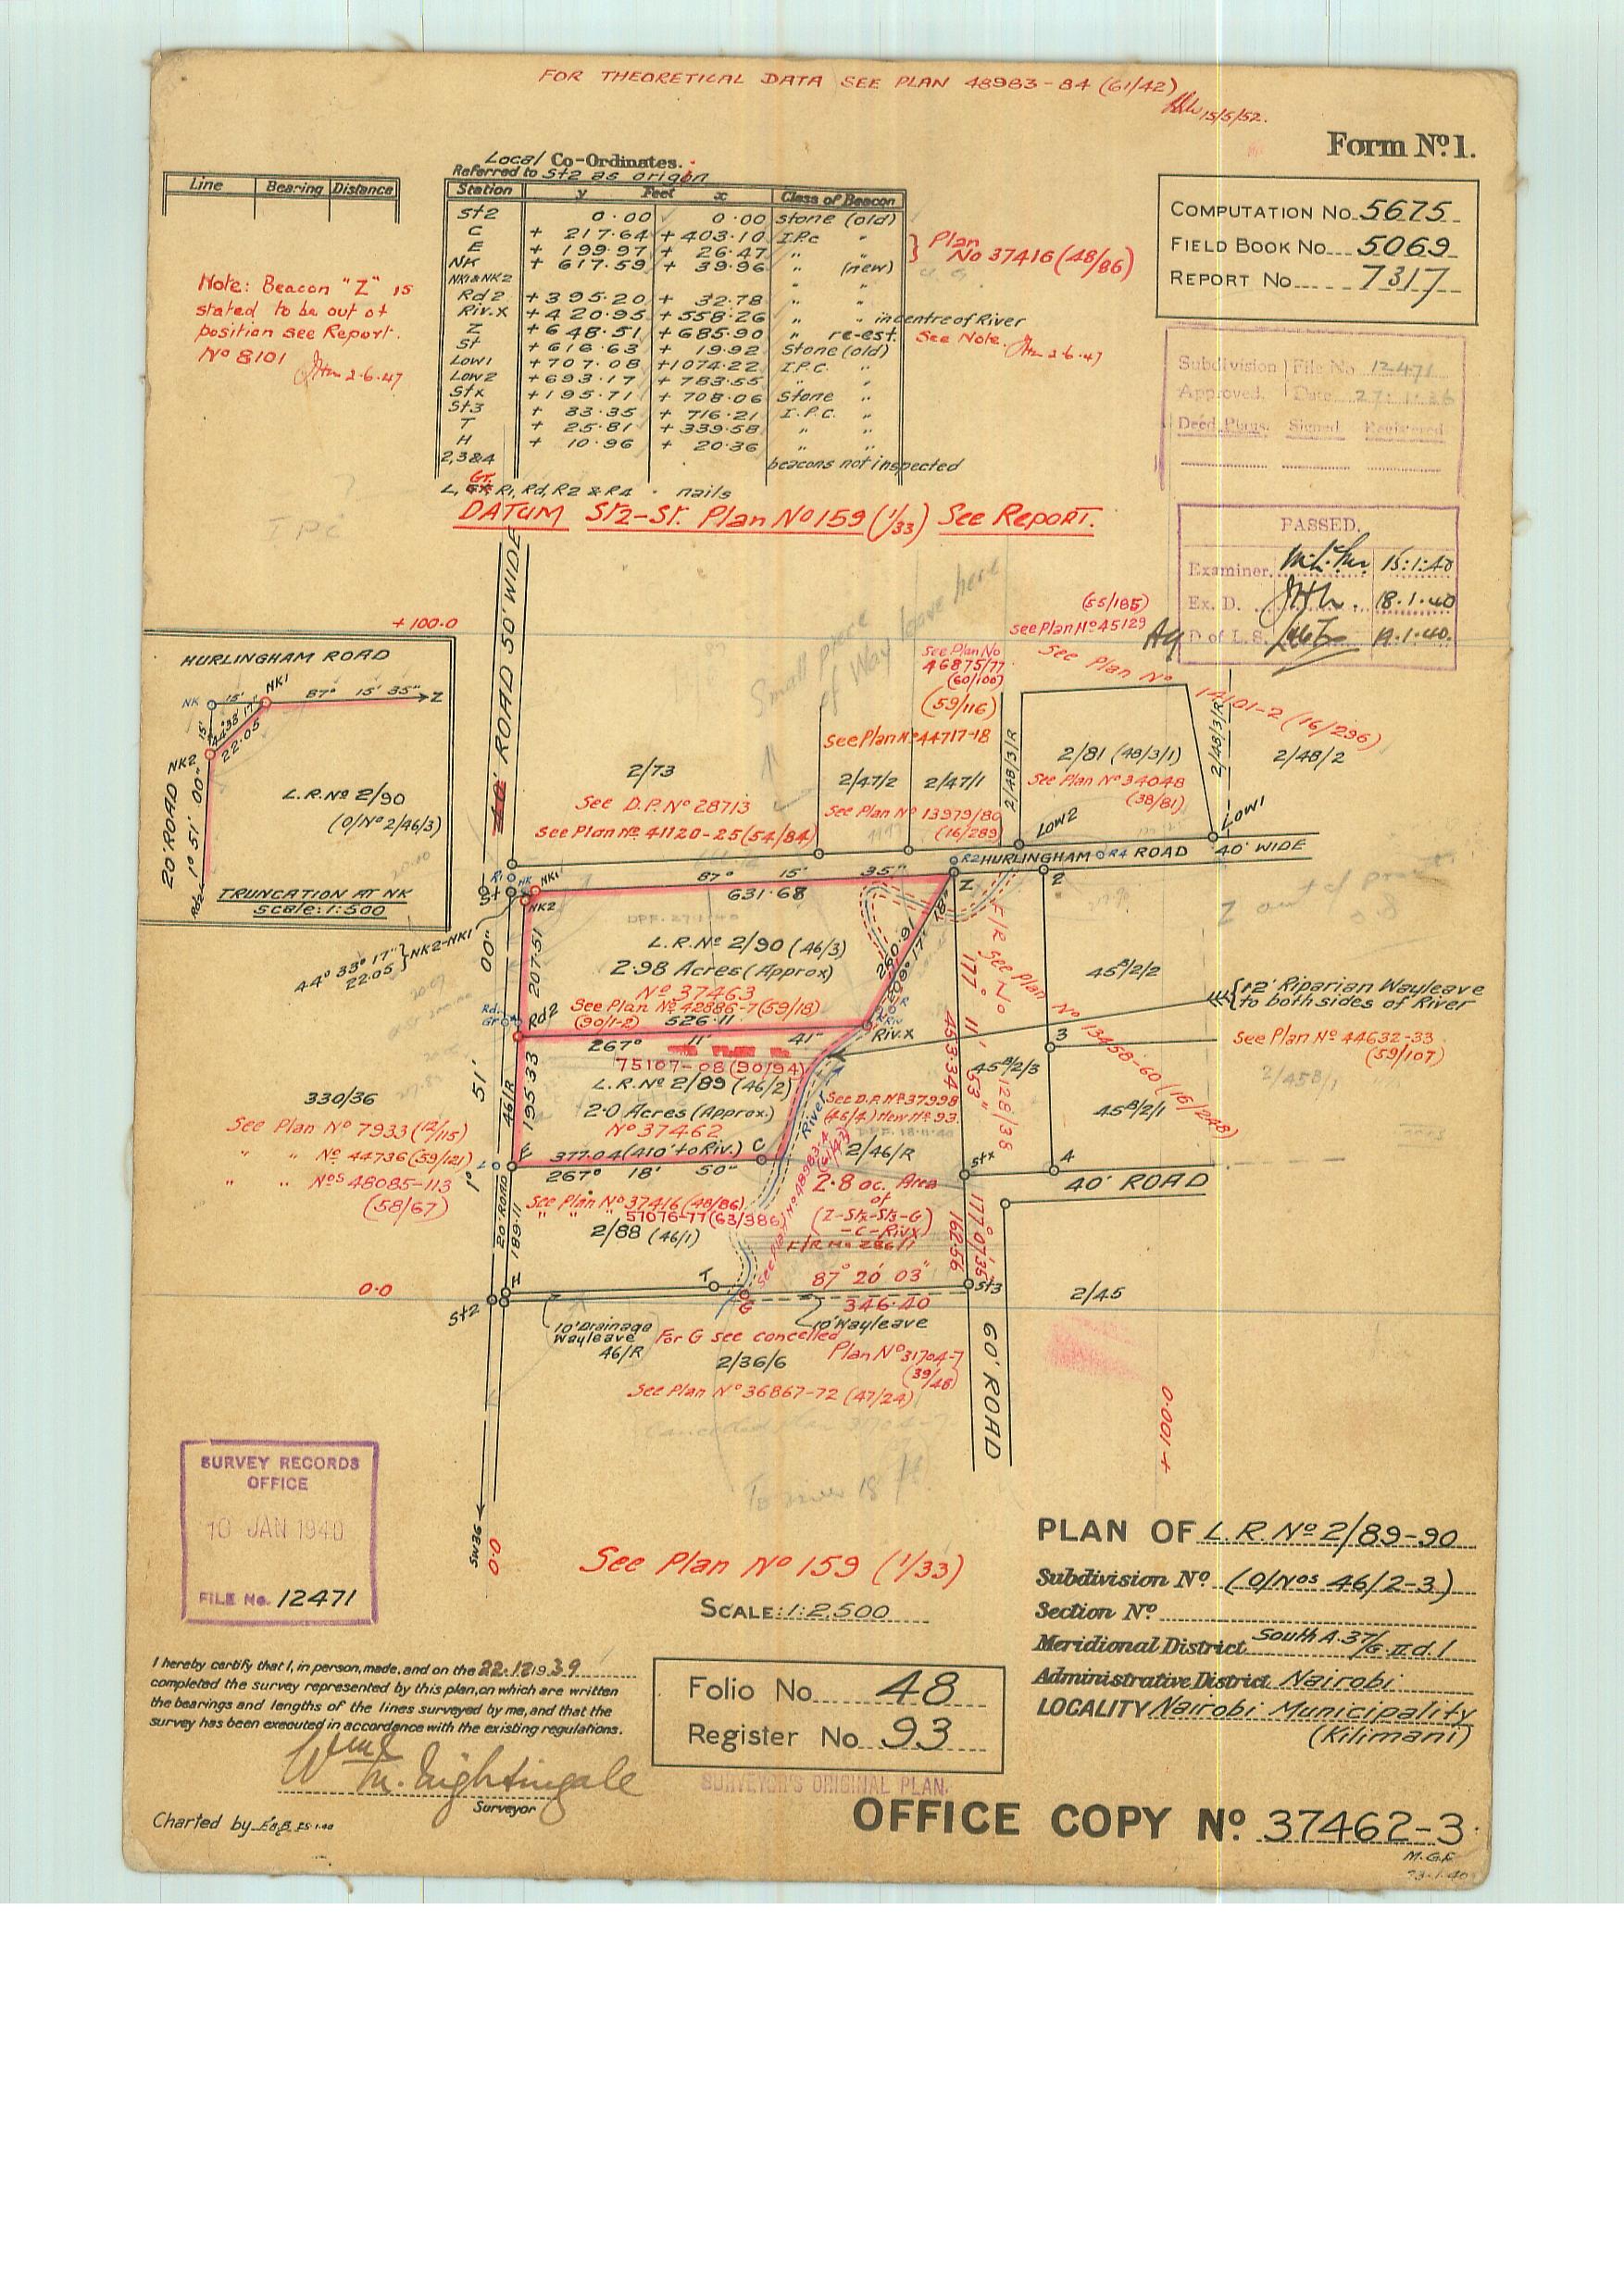 FOR THEORETICAL DATA SEE PLAN 48983-84 (61/42)
15/5/52.
Form No. 1.
Line Bearing Distance
Local Co-Ordinates.
Referred to St2 as origin
Station y Feet x Class of Beacon
St2 0.00 0.00 Stone (old)
C + 217.64 + 403.10 I.P.c "
E + 199.97 + 26.47 " "
NK + 617.59 + 39.96 " (new)
NK1 & NK2 "
Rd2 + 395.20 + 32.78 " "
Riv.X + 420.95 + 558.26 " " in centre of River
Z + 648.51 + 685.90 " re-est.
St + 616.63 + 19.92 Stone (old)
Low1 + 707.08 + 1074.22 I.P.C. "
Low2 + 693.17 + 783.55 " "
Stx + 195.71 + 708.06 Stone "
St3 + 33.35 + 716.21 I.P.C. "
T + 25.81 + 339.58 " "
H + 10.96 + 20.36 " "
2,3&4 beacons not inspected
L, Gr. R1, Rd, R2 & R4 . nails
Plan
No 37416 (48/86)
See Note. 2.6.47
COMPUTATION No. 5675
FIELD BOOK No. 5069
REPORT No. 7317
Note: Beacon "Z" is
stated to be out of
position see Report.
No 8101
2.6.47
Subdivision File No 12471
Approved. Date 27.1.36
Deed Plans. Signed Registered
DATUM St2-St. Plan No 159 (1/33) See Report.
I P C
PASSED.
Examiner. 15:1:40
Ex. D. 18.1.40
D of L. S. 19.1.40.
+100.0
HURLINGHAM ROAD
NK 15' NK1 87° 15' 35" Z
15' 44° 33' 17"
22.05
NK2
20' ROAD 1° 51' 00"
Rd2
L.R. No 2/90
(O/No 2/46/3)
TRUNCATION AT NK
SCALE: 1:500
ROAD 50' WIDE
Small piece
of Way leave here
(55/185)
See Plan No 45129
See Plan No 14101-2 (16/296)
See Plan No
46875/77
(60/100)
(59/116)
See Plan No 44717-18
2/47/2 2/47/1
See Plan No 13979/80
(16/289)
2/73
See D.P. No 28713
See Plan No. 41120-25 (54/84)
2/48/3/R
2/81 (48/3/1)
See Plan No 34048
(38/81)
2/48/3/R
2/48/2
LOW2 LOW1
R2 HURLINGHAM R4 ROAD 40' WIDE
R1 NK NK1
St NK2
87° 15' 35"
631.68
Z 2
44° 33' 17" } NK2-NK1
22.05
L.R. No 2/90 (46/3)
2.98 Acres (Approx)
No 37463
See Plan No 42886-7 (59/18)
(90/1-2)
526.11
267° 11' 41"
207.51
Rd2
260.91
Riv.X
F/R See Plan No 13458-60 (16/248)
177° 11' 53"
453.34
128/38
45B/2/2
12' Riparian Wayleave
to both sides of River
See Plan No 44632-33
(59/107)
3
45B/2/3
45B/2/1
75107-08 (90/94)
L.R. No 2/89 (46/2)
2.0 Acres (Approx.)
No 37462
195.33
46/R
1° 51' 00"
River
See D.P. No 37998
(46/4) New No 93.
2/46/R
330/36
See Plan No 7933 (12/115)
" " No 44736 (59/121)
" " Nos 48085-113
(58/67)
L E 377.04 (410' to Riv.) C
267° 18' 50"
See Plan No 37416 (48/86)
" " 51076-77 (63/386)
2/88 (46/1)
20' ROAD 189.11
See Plan No 48983-4
(61/42)
2.8 ac. Area
of
(Z-Stx-St3-G)
-C-RivX
F/R No 286/1
Stx 4
40' ROAD
162.56
177° 07' 35"
0.0
H T G
87° 20' 03"
346.40
St3
St2
2/45
10' Drainage
Wayleave
46/R
10' Wayleave
For G see cancelled
Plan No 31704-7
(39/48)
2/36/6
See Plan No 36867-72 (47/24)
Cancelled Plan 31704-7.
60' ROAD
+100.0
SW36
0.0
SURVEY RECORDS
OFFICE
10 JAN 1940
FILE No. 12471
See Plan No 159 (1/33)
SCALE: 1:2,500
PLAN OF L.R. No 2/89-90
Subdivision No (O/Nos 46/2-3)
Section No
Meridional District South A.37/G.II.d.1
Administrative District Nairobi
LOCALITY Nairobi Municipality
(Kilimani)
I hereby certify that I, in person, made, and on the 22.12.1939
completed the survey represented by this plan, on which are written
the bearings and lengths of the lines surveyed by me, and that the
survey has been executed in accordance with the existing regulations.
M. Nightingale
Surveyor
Charted by
Folio No. 48
Register No. 93
SURVEYOR'S ORIGINAL PLAN.
OFFICE COPY No. 37462-3
M.G.F.